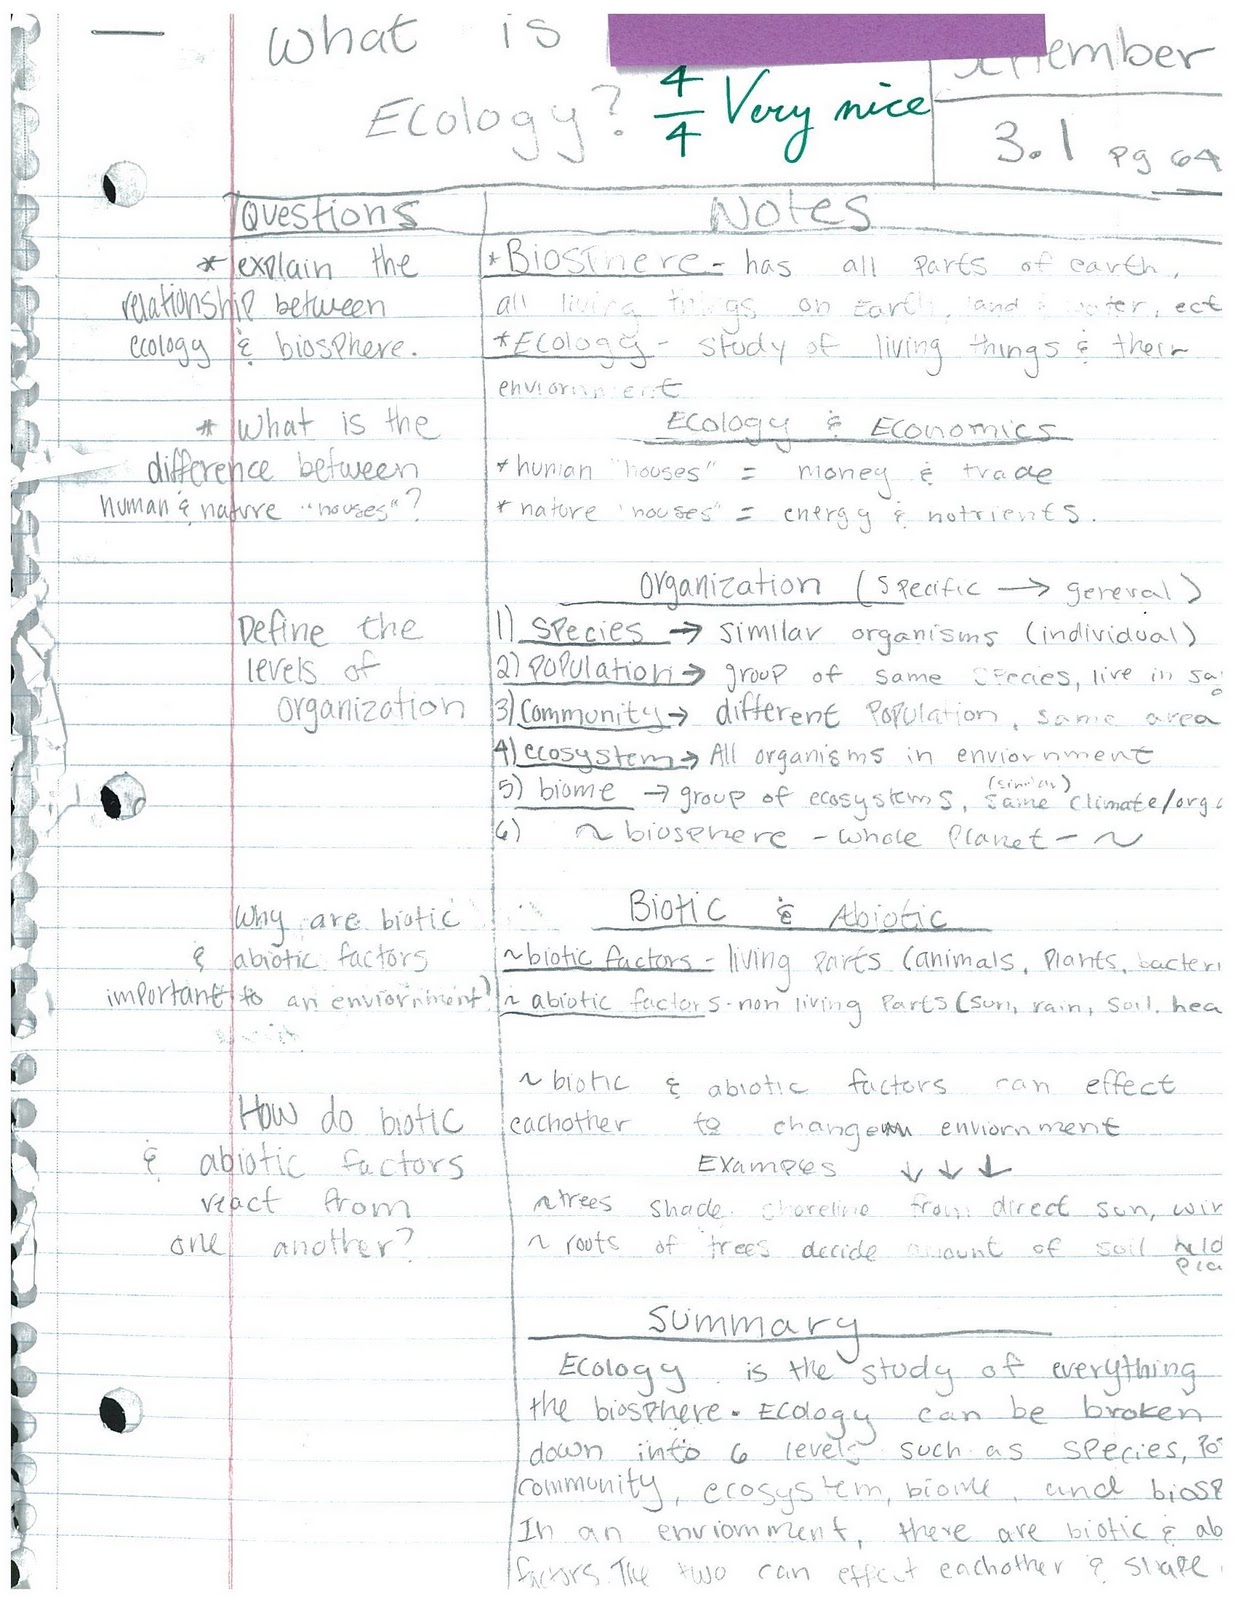 What is
Ecology? 4/4 Very nice
3.1 pg 64
Questions Notes
* explain the
relationship between
ecology & biosphere.
* Biosphere - has all parts of earth,
all living things on Earth, land & water, ect
* Ecology - study of living things & their
enviornment
* What is the
difference between
human & nature "houses"?
Ecology & Economics
* human "houses" = money & trade
* nature "houses" = energy & notrients.
Organization (specific → gereral)
Define the
levels of
organization
1) Species → similar organisms (individual)
2) Population → group of same species, live in
3) Community → different population, same area
4) ecosystem → All organisms in enviornment
(similar)
5) biome → group of ecosystems, same climate/org
6) ~ biosphere - whole planet - ~
Why are biotic
& abiotic factors
important to an enviornment?
Biotic & Abiotic
~ biotic factors - living parts (animals, plants, bacteri
~ abiotic factors - non living parts (sun, rain, soil, hea
How do biotic
& abiotic factors
react from
one another?
~ biotic & abiotic factors can effect
eachother to change enviornment
Examples ↓ ↓ ↓
~ trees shade shoreline from direct sun,
~ roots of trees decide amount of soil held
pla
Summary
Ecology is the study of everything
the biosphere. Ecology can be broken
down into 6 levels such as species, Po
community, ecosystem, biome, and biosp
In an enviornment, there are biotic & ab
factors. The two can effect eachother & shape